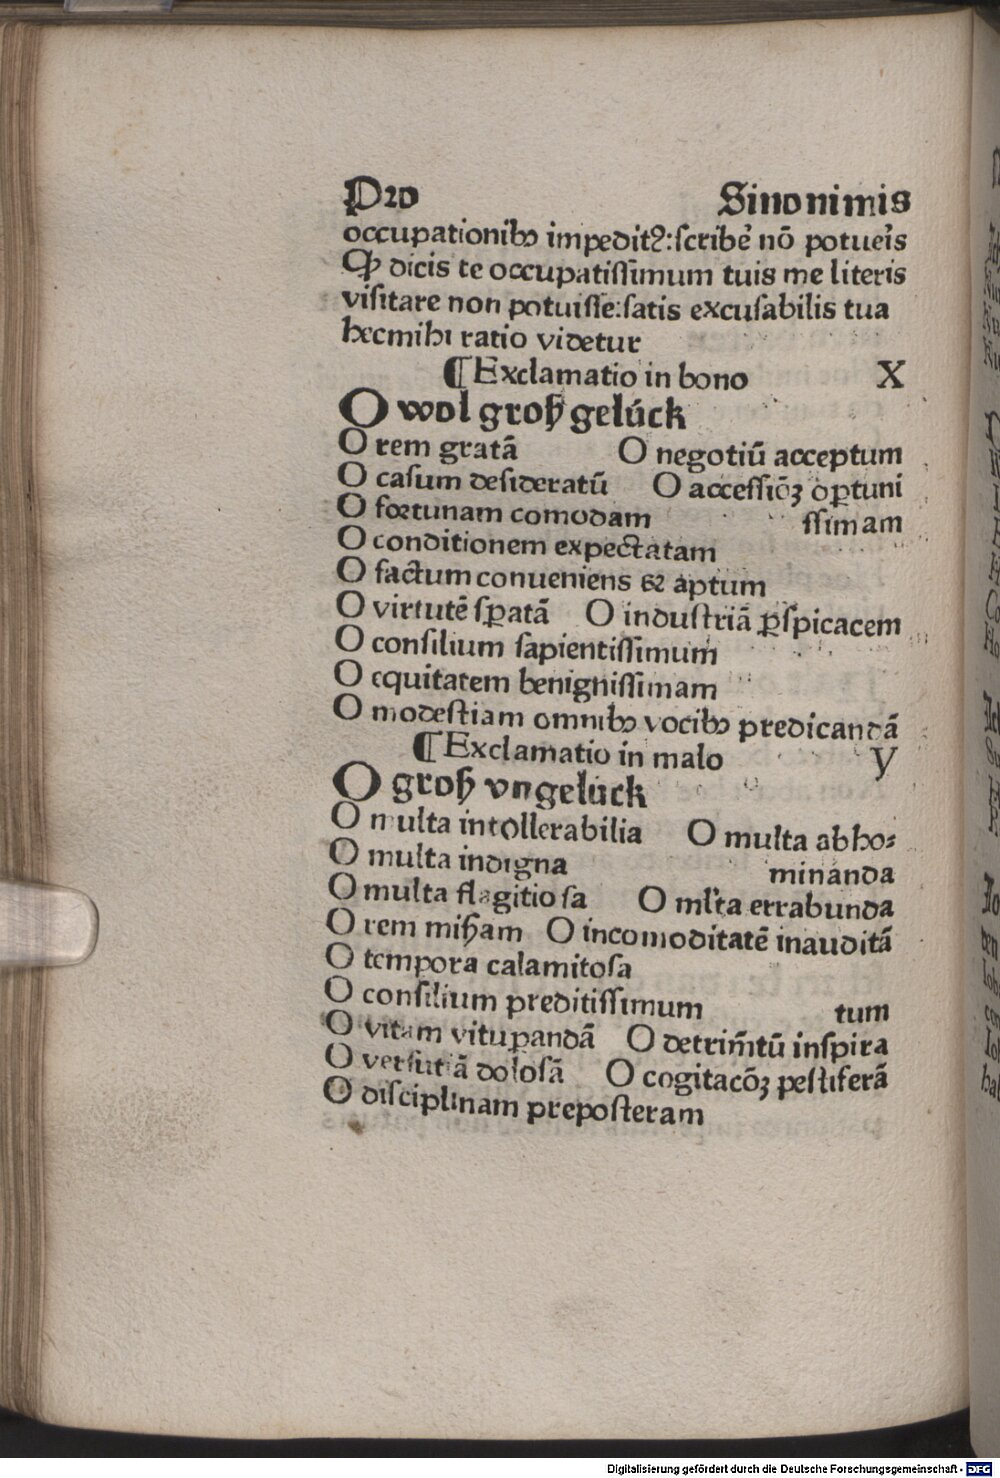 Pro Sinonimis
occupationibꝰ impeditꝰ:ſcribe᷑ nō potueris
Qp dicis te occupatiſſimum tuis me literis
viſitare non potuiſſe:ſatis excuſabilis tua
hecmihi ratio videtur
¶Exclamatio in bono X
O wol groß gelúck
O rem gratā O negotiū acceptum
O caſum deſideratū O acceſſiōꝫ oꝑtuni
O foꝛtunam comodam ſſimam
O conditionem expectatam
O factum conueniens & aptum
O virtutē ſꝑatā O induſtriā ꝑſpicacem
O conſilium ſapientiſſimum
O equitatem benigniſſimam
O modeſtiam omnibꝰ vocibꝰ predicandā
¶Exclamatio in malo y
O groß vngelück
O multa intollerabilia O multa abho⸗
O multa indigna minanda
O multa flagitioſa O ml'ta errabunda
O rem miẞam O incomoditatē inauditā
O tempora calamitoſa
O conſilium preditiſſimum tum
O vitam vituꝑandā O detrim̄tū inſpira
O verſutiā doloſā O cogitacōꝫ peſtiferā
O diſciplinam prepoſteram
Digitalisierung gefördert durch die Deutsche Forschungsgemeinschaft - DFG